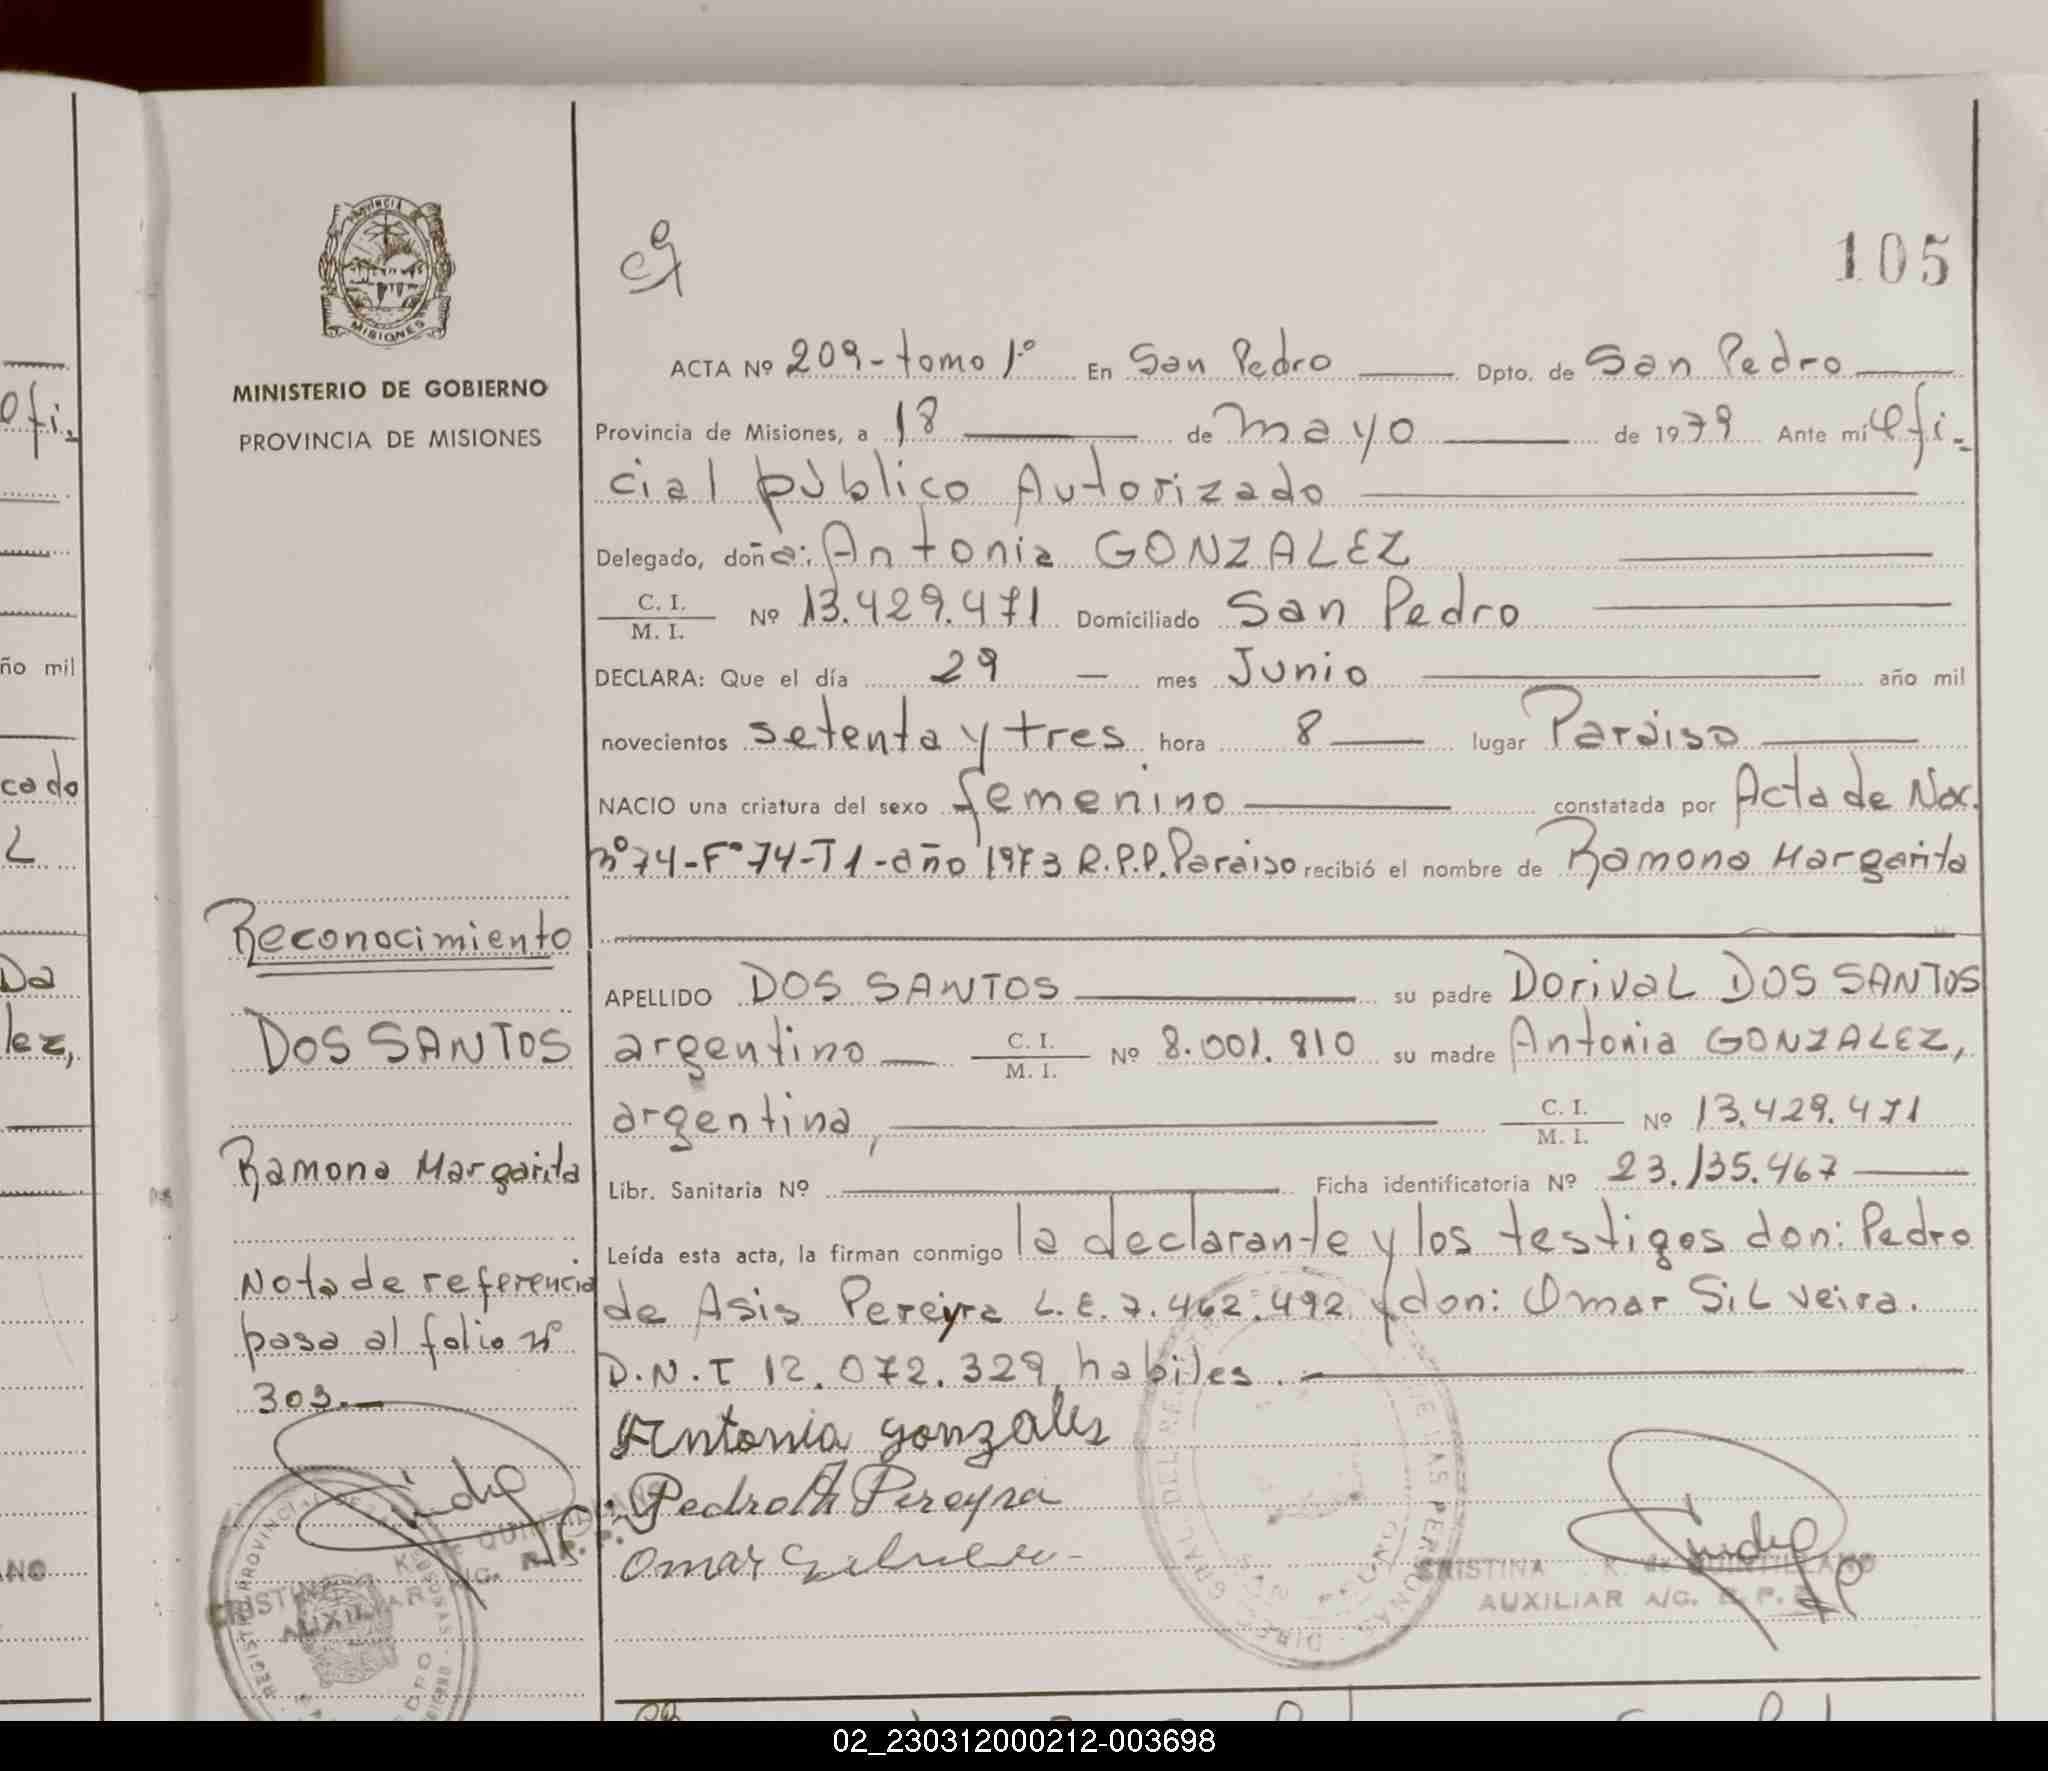 105
PROVINCIA DE
MISIONES
MINISTERIO DE GOBIERNO
PROVINCIA DE MISIONES
ACTA Nº 209-tomo 1º En San Pedro Dpto. de San Pedro
Provincia de Misiones, a 18 de mayo de 1979 Ante mi Ofi-
cial público Autorizado
Delegado, doña: Antonia GONZALEZ
C. I. / M. I. Nº 13.429.471 Domiciliado San Pedro
DECLARA: Que el día 29 mes Junio año mil
novecientos setenta y tres hora 8 lugar Paraiso
NACIO una criatura del sexo femenino constatada por Acta de Nac.
nº 74-Fº 74-T1-año 1973 R.P.P. Paraiso recibió el nombre de Ramona Margarita
APELLIDO DOS SANTOS su padre Dorival DOS SANTOS
argentino C. I. / M. I. Nº 8.001.810 su madre Antonia GONZALEZ,
argentina, C. I. / M. I. Nº 13.429.471
Libr. Sanitaria Nº Ficha identificatoria Nº 23.135.467
Leída esta acta, la firman conmigo la declarante y los testigos don: Pedro
de Asis Pereyra L.E. 7.462.492 y don: Omar SiLveira.
D.N.I 12.072.329, habiles.
Antonia gonzales
Pedro A Pereyra
Omar
CRISTINA K. de QUINTILLANO
AUXILIAR A/C. R. P.
Reconocimiento
DOS SANTOS
Ramona Margarita
Nota de referencia
pasa al folio nº
303.-
CRISTINA K. de QUINTILLANO
AUXILIAR A/C. R. P.
Ofi-
ño mil
cado
L
Da
lez,
ANO
02_230312000212-003698